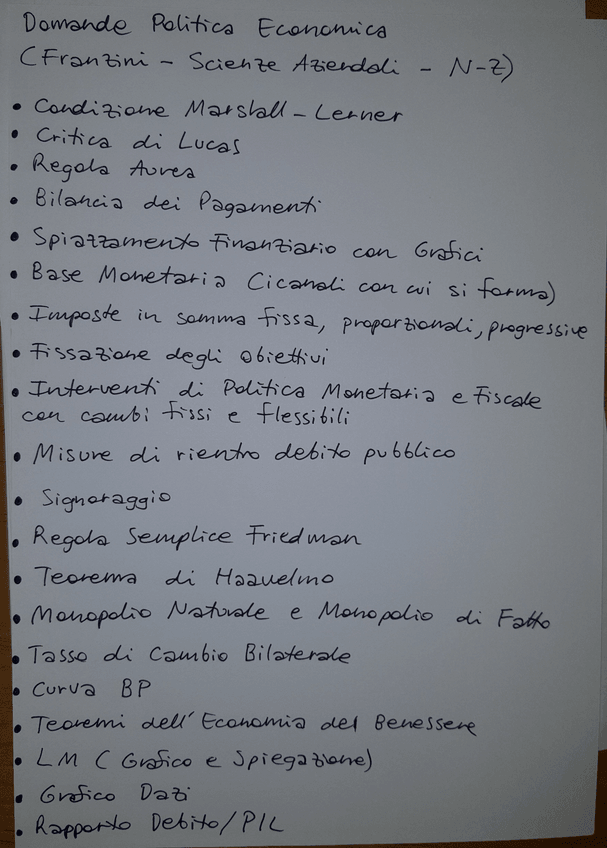 Domande Politica Economica
(Franzini - Scienze Aziendali - N-Z)
• Condizione Marshall-Lerner
• Critica di Lucas
• Regola Aurea
• Bilancia dei Pagamenti
• Spiazzamento Finanziario con Grafici
• Base Monetaria (i canali con cui si forma)
• Imposte in somma fissa, proporzionali, progressive
• Fissazione degli obiettivi
• Interventi di Politica Monetaria e Fiscale
con cambi fissi e flessibili
• Misure di rientro debito pubblico
• Signoraggio
• Regola Semplice Friedman
• Teorema di Haavelmo
• Monopolio Naturale e Monopolio di Fatto
• Tasso di Cambio Bilaterale
• Curva BP
• Teoremi dell'Economia del Benessere
• LM (Grafico e Spiegazione)
• Grafico Dazi
• Rapporto Debito/PIL